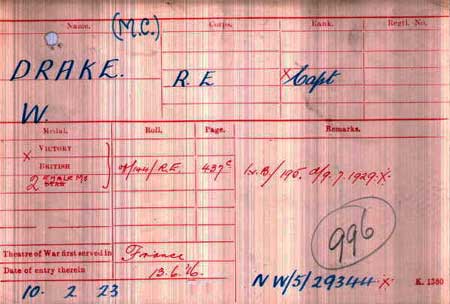 Name. (M.C.) Corps. Rank. Regtl. No.
DRAKE. R.E X Capt
W.
Medal. Roll. Page. Remarks.
X VICTORY
BRITISH O/144/R.E. 437c 1.v.B/195. d/9.7.1929.X.
2
996
Theatre of War first served in France
Date of entry therein 13.6.16.
10. 2 23 NW/5/29344 X K. 1380